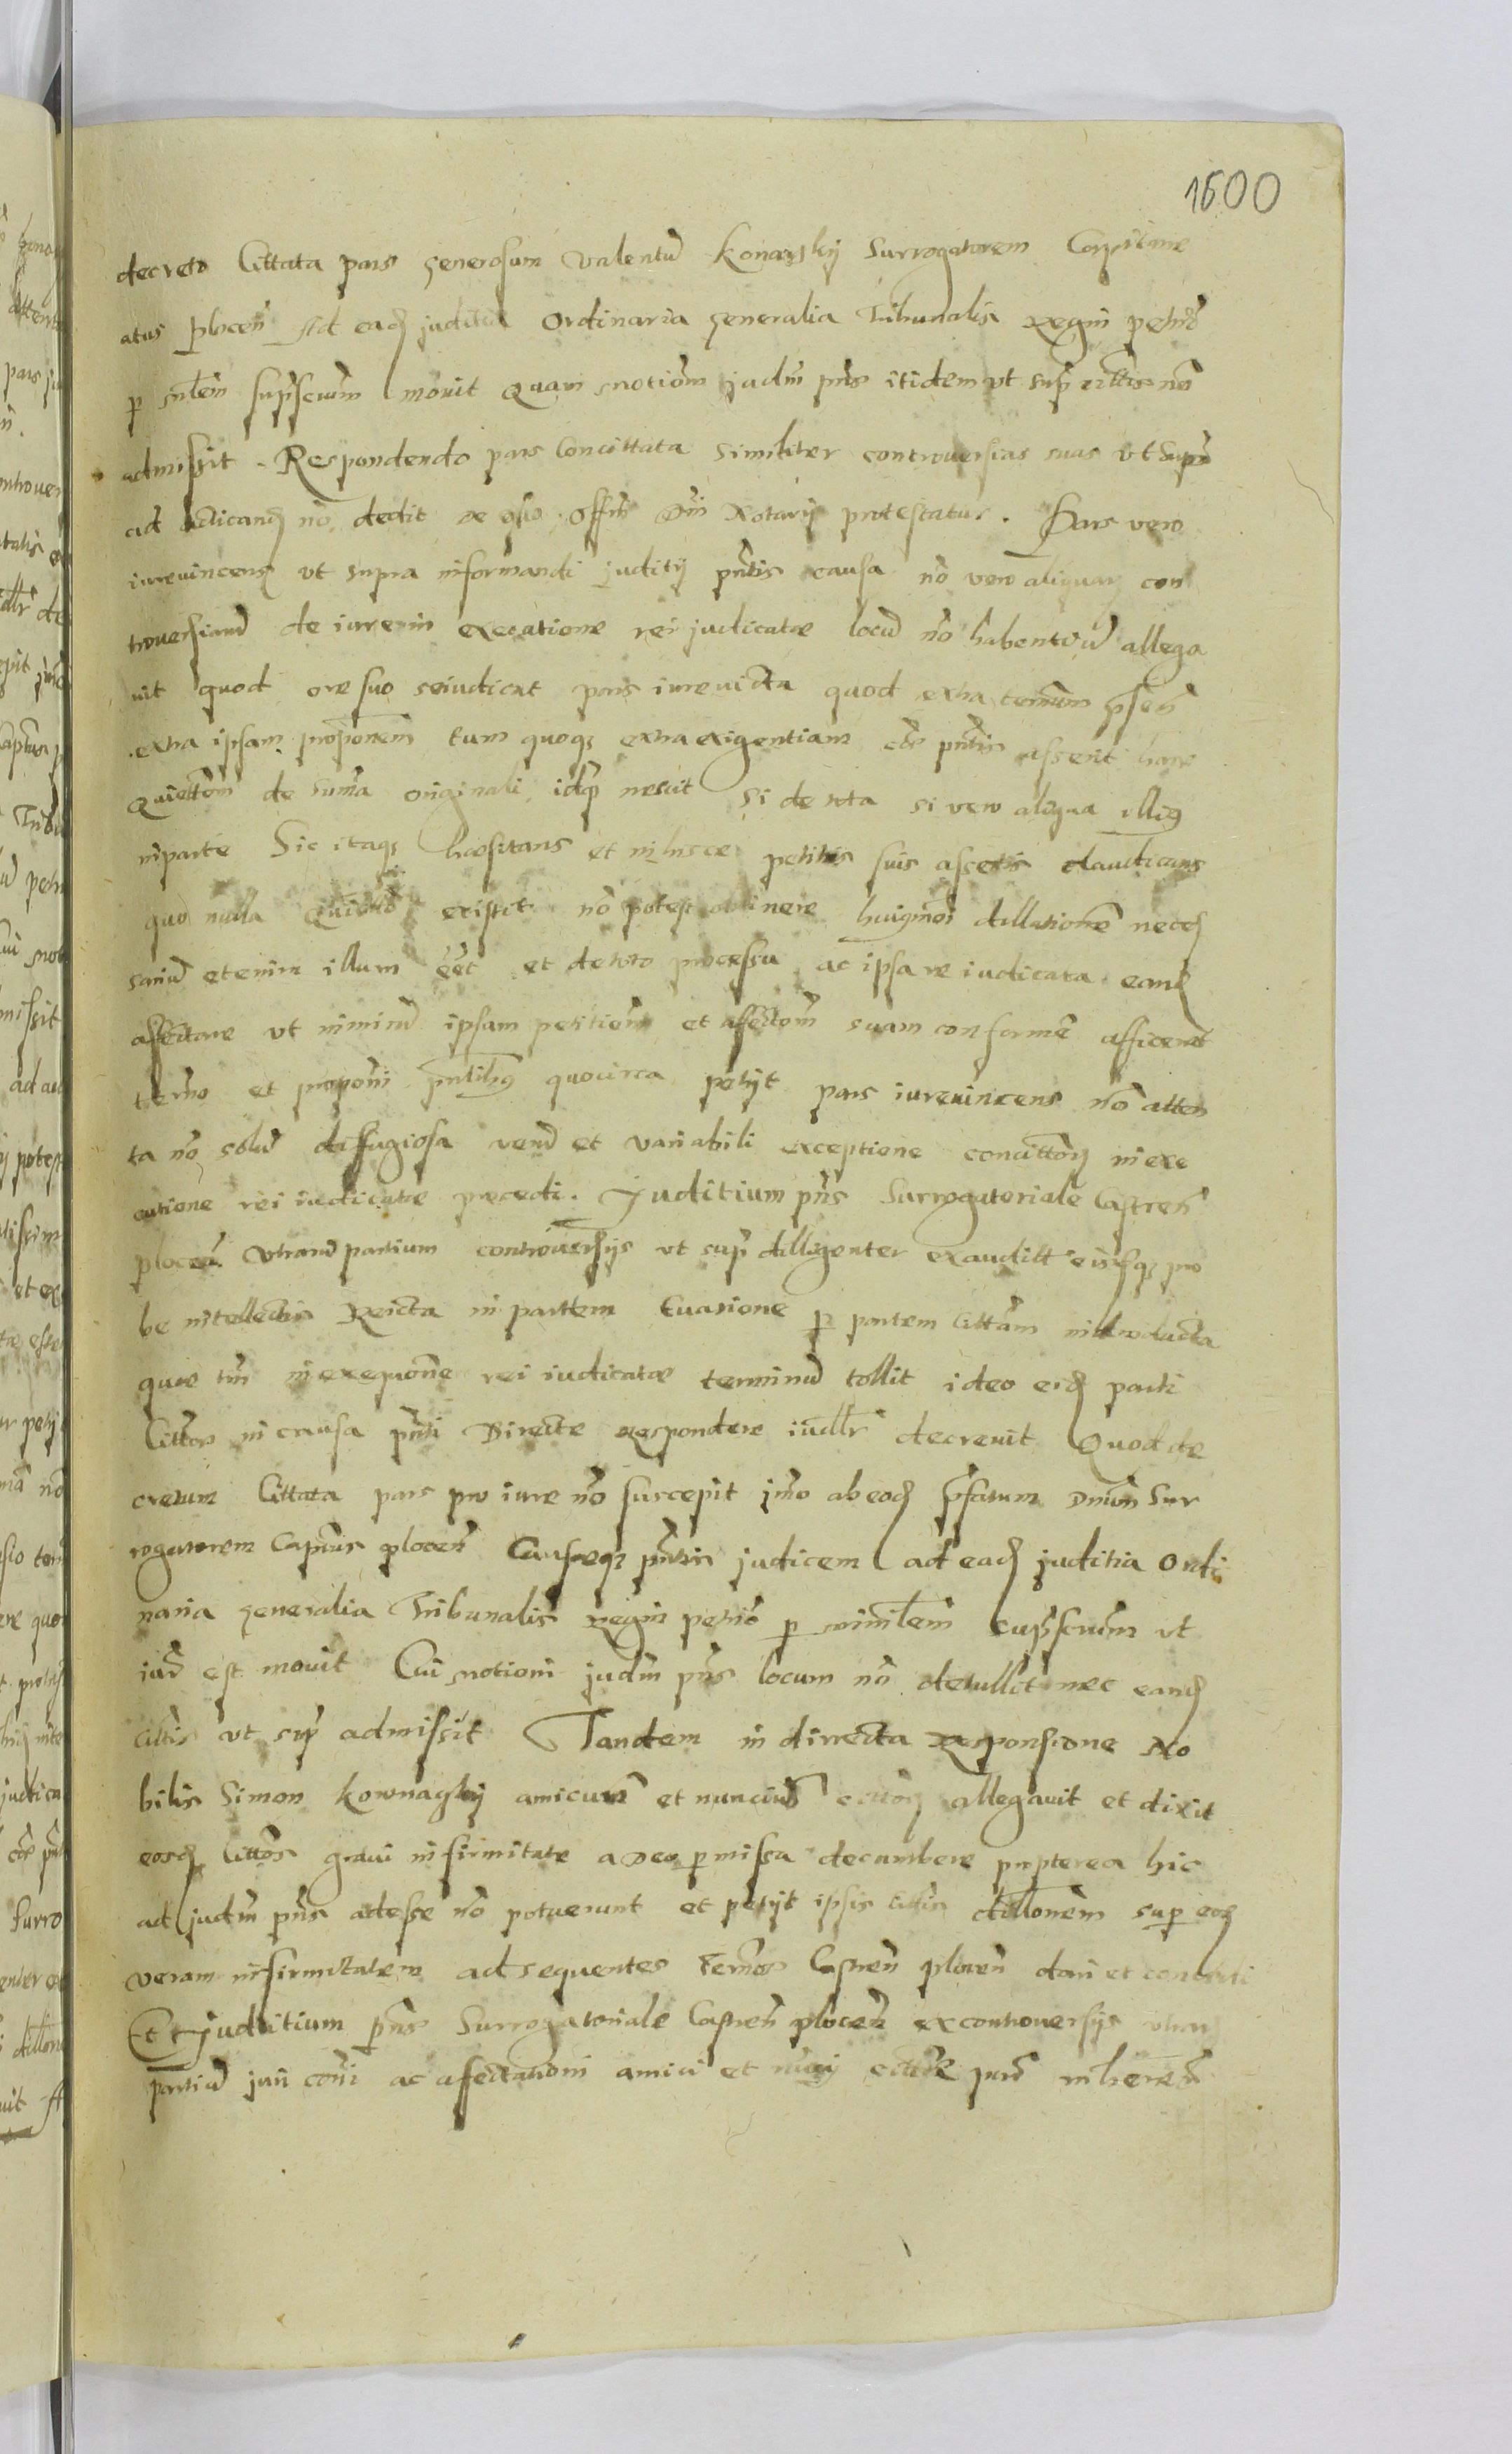 1600
decreto Cittata pars generosum Valentū Konarskij Surrogatorem Capitane
atus plocen̄ Ad eadē juditia Ordinaria generalia Tribunalis Regni petric̄
p siml̄em supscrium̄ movit Quam motiom̄ judm̄ pn̄s itidem vt supͣ cittis nō
admissit. Respondendo pars Concittata similiter controversias suas vt supra
ad adicandū nō dedit ex quo offm̄ Dn̄i Notarij protestatur. Pars vero
iurevincens vt supra informandi juditij pn̄tis causa nō vero aliquarū con
troversiarū de iure in executione rei judicatæ locū nō habentiū allega
vit quod ore suo se iudicat pars iurevicta quod extra termum̄ p̄sen̄
extra ipsam propoōnem tum quoq; extra exigentiam cāe pn̄tis asserit hanc
Quiettom̄ de sum̄a originali idq; nescit si de tota si vero aliqua illius
in parte Sic itaq; hæsitans et in hisce petitis suis assertis claudicans
quo nulla Quiettō existit nō potest obtinere huiusmōi dillationē neces
sariū etenim illum eēt et de toto processu ac ipsa re iudicata eandē
affectare vt nimirū ipsam petitiom̄ et affectom̄ suam conformē afficeret
term̄o et propom̄i pn̄tibus quocirca petijt pars iurevincens nō atten
ta nō solū diffugiosa verū et variabili exceptione concittorū in exe
cutione rei iudicatæ procedi. Juditium pn̄s Surrogatoriale Castren̄
plocen̄ Vtrarū partium controversijs vt supͣ dilligenter exaudit eisq; pro
be intellectis Reiecta in partem Evasione p partem Cittam̄ introducta
quæ tm̄ in exequōne rei iudicatæ terminū tollit ideo eidē parti
Cittæ in causa pn̄ti Directe respondere iudlr decrevit Quod de
cretum Cittata pars pro iure nō suscepit imō ab eodē p̄fatum Dn̄um Sur
rogatorem Captn̄us plocen̄ Causæq; pn̄tis judicem ad eadē juditia Ordi
naria generalia Tribunalis Regni petric̄ p siml̄em supscrium̄ vt
iuris est movit Cui motioni judm̄ pn̄s locum nō detullit nec eandē
cittis vt supͣ admissit Tandem in directa Responsione No
bilis Simon Kownaczkij amicus et nuncius cittorū allegavit et dixit
eosdē Cittos gravi infirmitate a Deo pmissa decumbere propterea hic
ad judm̄ pn̄s adesse nō potuerunt et petijt ipsis cittis dillōnem sup eorū
veram infirmitatem ad sequentes Term̄os Castren̄ plocen̄ dari et concedi
Et Juditium pn̄s Surrogatoriale Castren̄ plocen̄ ex controversijs vtrarū
partiū juri cōi ac afectationi amici et nuncij